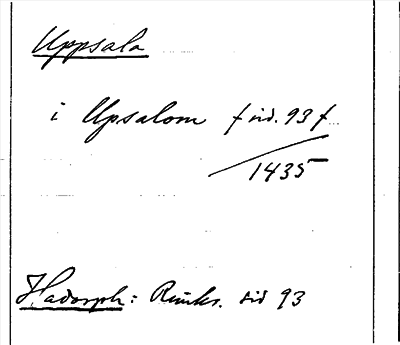 Uppsala
i Upsalom f sid. 93 f
1435
Hadorph: Rimkr. sid 93